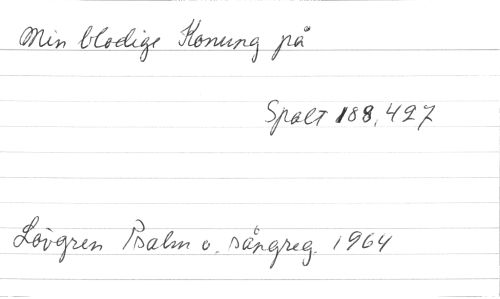 Min blodige Konung på
Spalt 188, 427
Lövgren Psalm o. sångreg. 1964